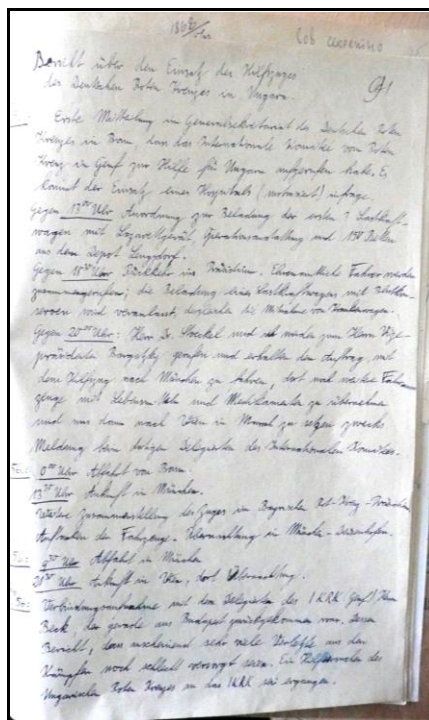 Bericht über den Einsatz des Hilfszuges
des Deutschen Roten Kreuzes in Ungarn.
Erste Mitteilung im Generalsekretariat des Deutschen Roten
Kreuzes in Bonn, dass das Internationale Komitee vom Roten
Kreuz in Genf zur Hilfe für Ungarn aufgerufen habe. Es
kommt der Einsatz eines Hospitals (motorisiert) infrage.
Gegen 13⁰⁰ Uhr Anordnung zur Beladung der ersten 7 Lastkraft-
wagen mit Lazarettgerät, Operationsausstattung und 150 Betten
aus dem Depot Lengsdorf.
Gegen 18⁰⁰ Uhr Rückkehr ins Präsidium. Ehrenamtliche Fahrer werden
zusammengerufen; die Beladung eines Lastkraftwagens mit
wird veranlasst, desgleichen die Mitnahme von Krankenwagen.
Gegen 20⁰⁰ Uhr: Herr Dr. Stoeckel und ich werden zum Herrn Vize-
präsidenten Bargatzky gerufen und erhalten den Auftrag, mit
dem Hilfszug nach München zu fahren, dort noch weitere Fahr-
zeuge mit Lebensmitteln und Medikamenten zu übernehmen
und uns dann nach Wien in Marsch zu setzen zwecks
Meldung beim dortigen Delegierten des Internationalen Komitees.
0⁰⁰ Uhr Abfahrt von Bonn.
Uhr Ankunft in München.
Weitere Zusammenstellung des Zuges im Bayrischen Rot-Kreuz-Präsidium.
Auftanken der Fahrzeuge. Übernachtung in München-Deisenhofen.
Uhr Abfahrt in München
Uhr Ankunft in Wien, dort Übernachtung.
Verbindungsaufnahme mit dem Delegierten des IKRK Genf, Herrn
Beck, der gerade aus Budapest zurückgekommen war. Dessen
Bericht, dass anscheinend sehr viele Verletzte aus den
Kämpfen noch schlecht versorgt seien. Ein Hilfeersuchen des
Ungarischen Roten Kreuzes an das IKRK sei ergangen.